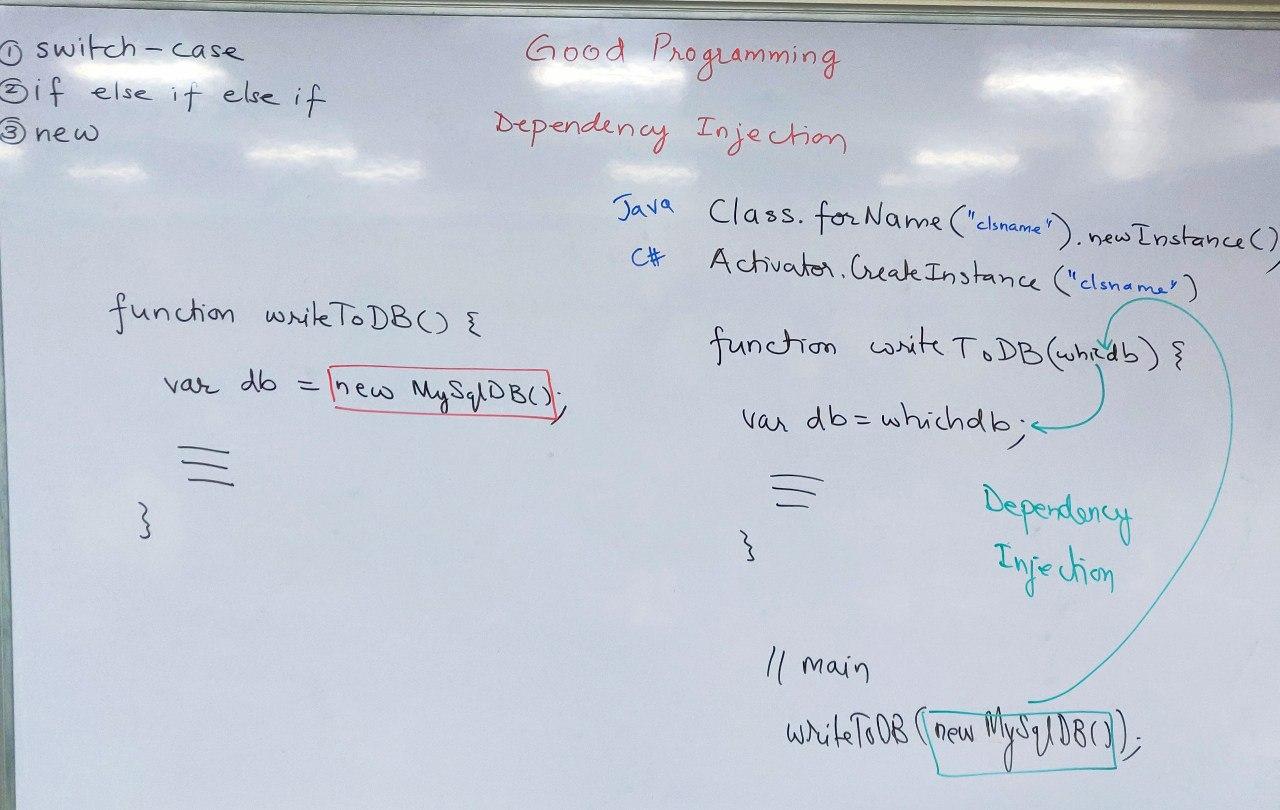 ① switch-case
② if else if else if
③ new
Good Programming
Dependency Injection
Java Class.forName("clsname").newInstance()
C# Activator.CreateInstance("clsname")
function writeToDB() {
var db = new MySqlDB();
}
function writeToDB(whichdb) {
var db = whichdb;
}
Dependency
Injection
// main
writeToDB(new MySqlDB());